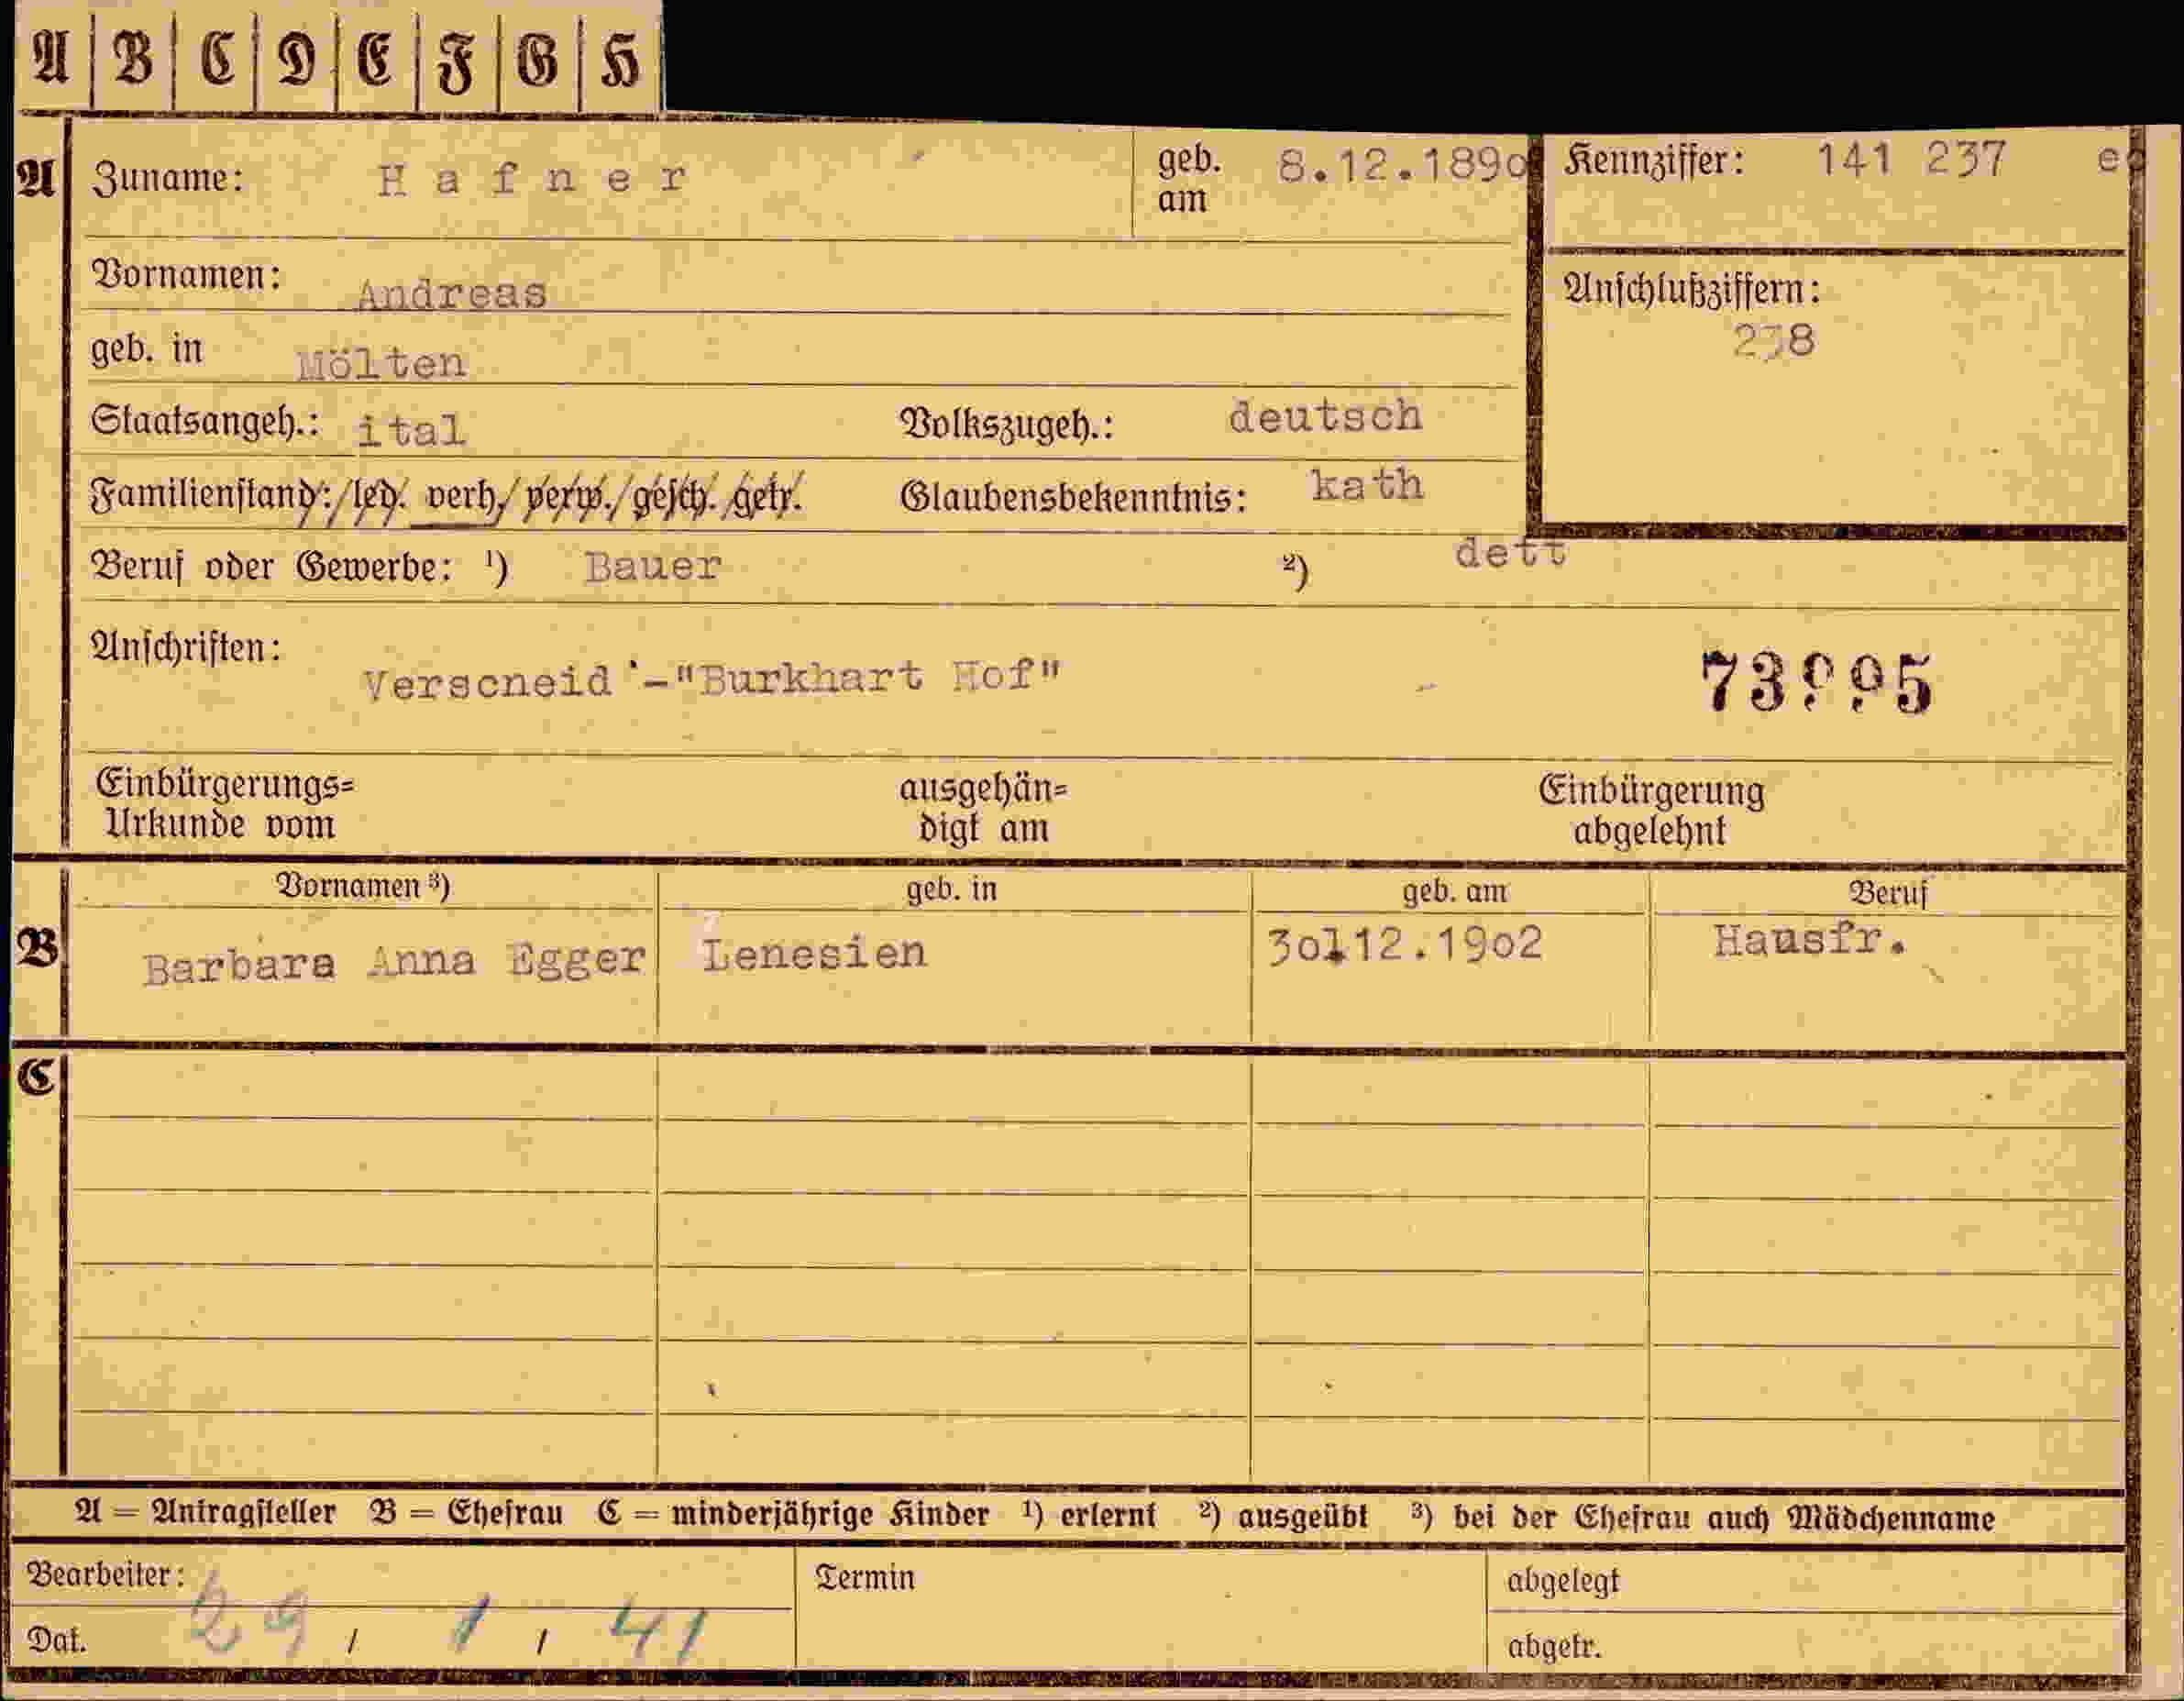 A B C D E F G H
A Zuname: Hafner geb. am 8.12.1890 Kennziffer: 141 237
Vornamen: Andreas Anschlußziffern:
238
geb. in Mölten
Staatsangeh.: ital Volkszugeh.: deutsch
Familienstand: led. verh. verw. gesch. getr. Glaubensbekenntnis: kath
Beruf oder Gewerbe: ¹) Bauer ²) dett
Anschriften:
Verscneid -"Burkhart Hof"
Einbürgerungs= ausgehän= Einbürgerung
Urkunde vom digt am abgelehnt
Vornamen ³) geb. in geb. am Beruf
B Barbara Anna Egger Lenesien 30112.1902 Hausfr.
C
A = Antragsteller B = Ehefrau C = minderjährige Kinder ¹) erlernt ²) ausgeübt ³) bei der Ehefrau auch Mädchenname
Bearbeiter: Termin abgelegt
Dat. 29 / 1 / 41 abgetr.